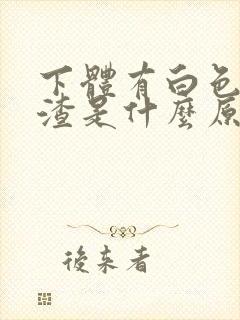 下體有白色
渣是什麼原
後來者